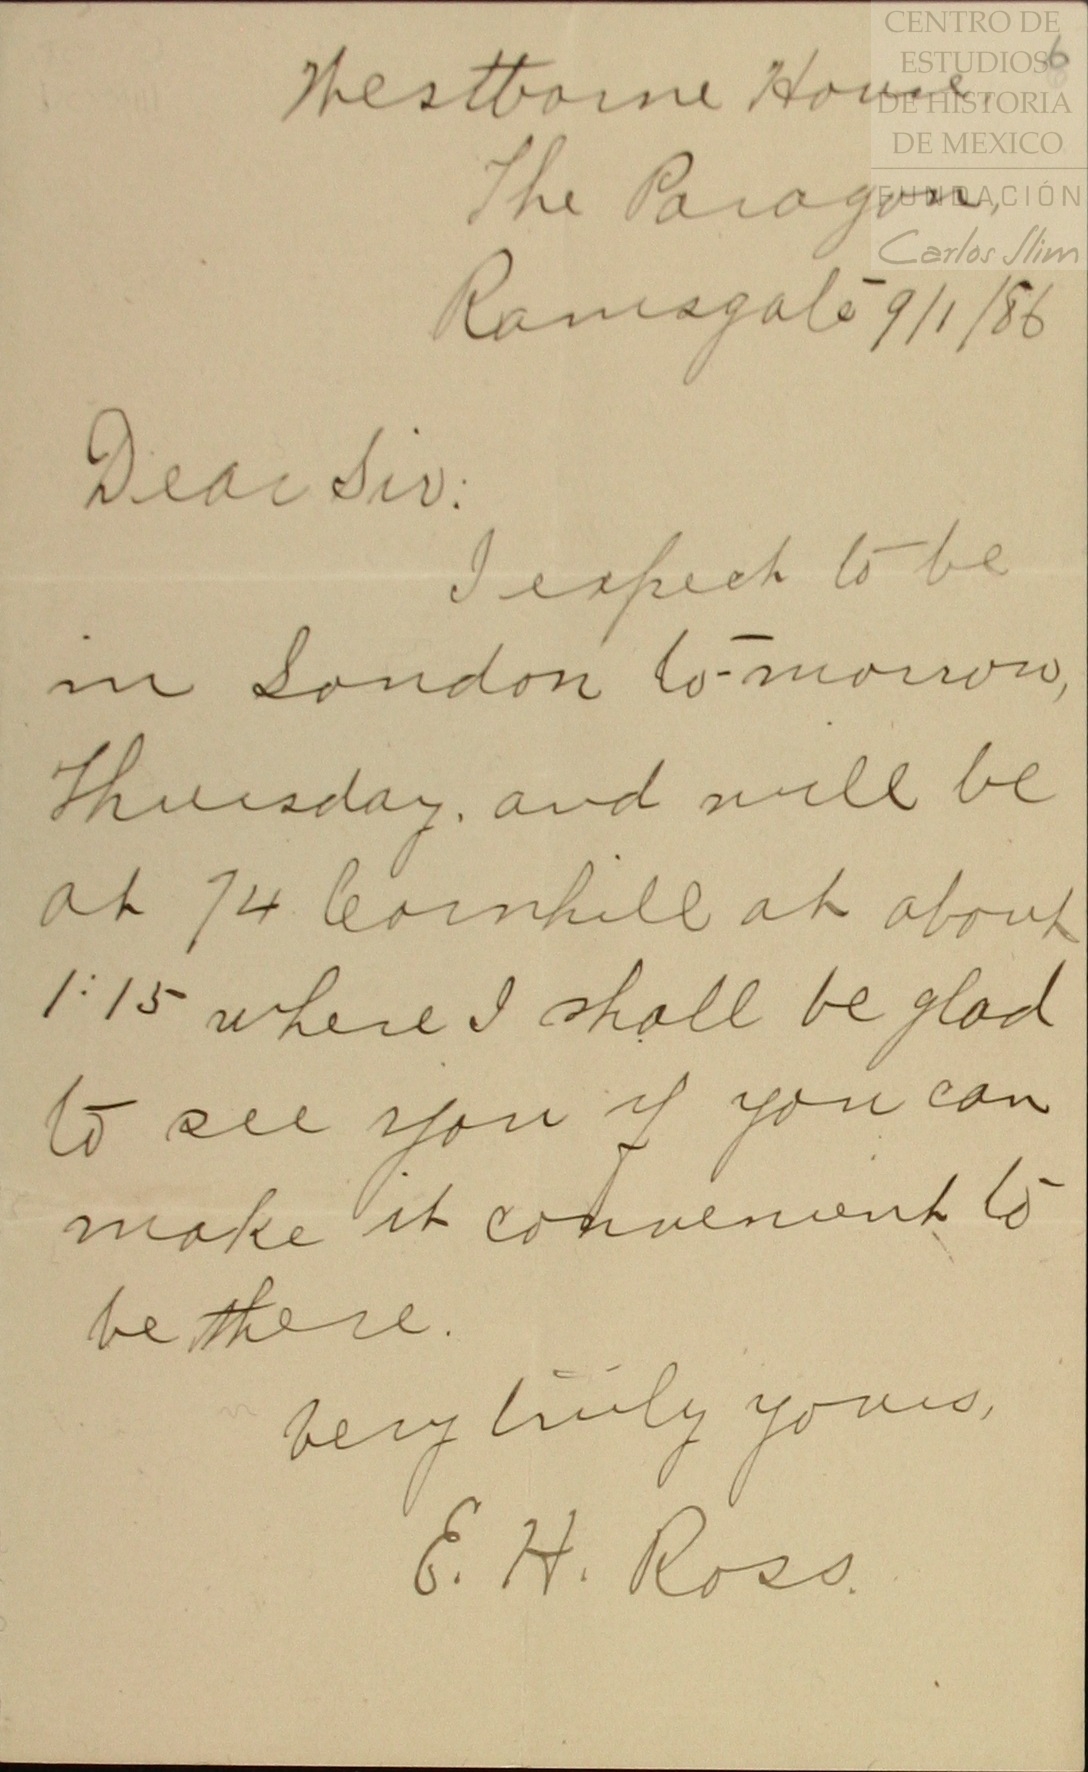 CENTRO DE
ESTUDIOS
DE HISTORIA
DE MEXICO
FUNDACIÓN
Carlos Slim
6
Westborne House,
The Paragon,
Ramsgate 9/1/86
Dear Sir:
I expect to be
in London to-morrow,
Thursday, and will be
at 74 Cornhill at about
1:15 where I shall be glad
to see you if you can
make it convenient to
be there.
Very truly yours,
E. H. Ross.